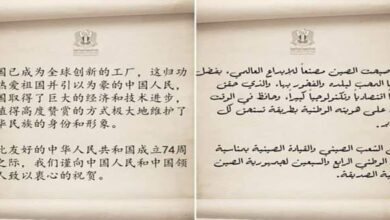 国已成为全球创新的工厂，这归功
热爱祖国并引以为豪的中国人民，
国取得了巨大的经济和技术进步，
值得高度赞赏的方式极大地维护了
华民族的身份和形象。
此友好的中华人民共和国成立74周
之际，我们谨向中国人民和中国领
人致以衷心的祝贺。
الصين مصنعاً للإبداع العالمي، بفضل
المحب لبلده والفخور بها، والذي حقق
اقتصادياً وتكنولوجياً كبيراً، وحافظ في الوقت
على هويته الوطنية بطريقة تستحق كل
الشعب الصيني والقيادة الصينية بمناسبة
الوطني الرابع والسبعين لجمهورية الصين
الصديقة.